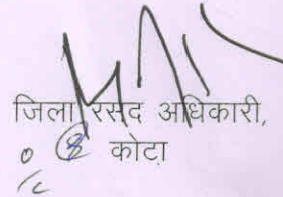 जिला रसद अधिकारी,
कोटा